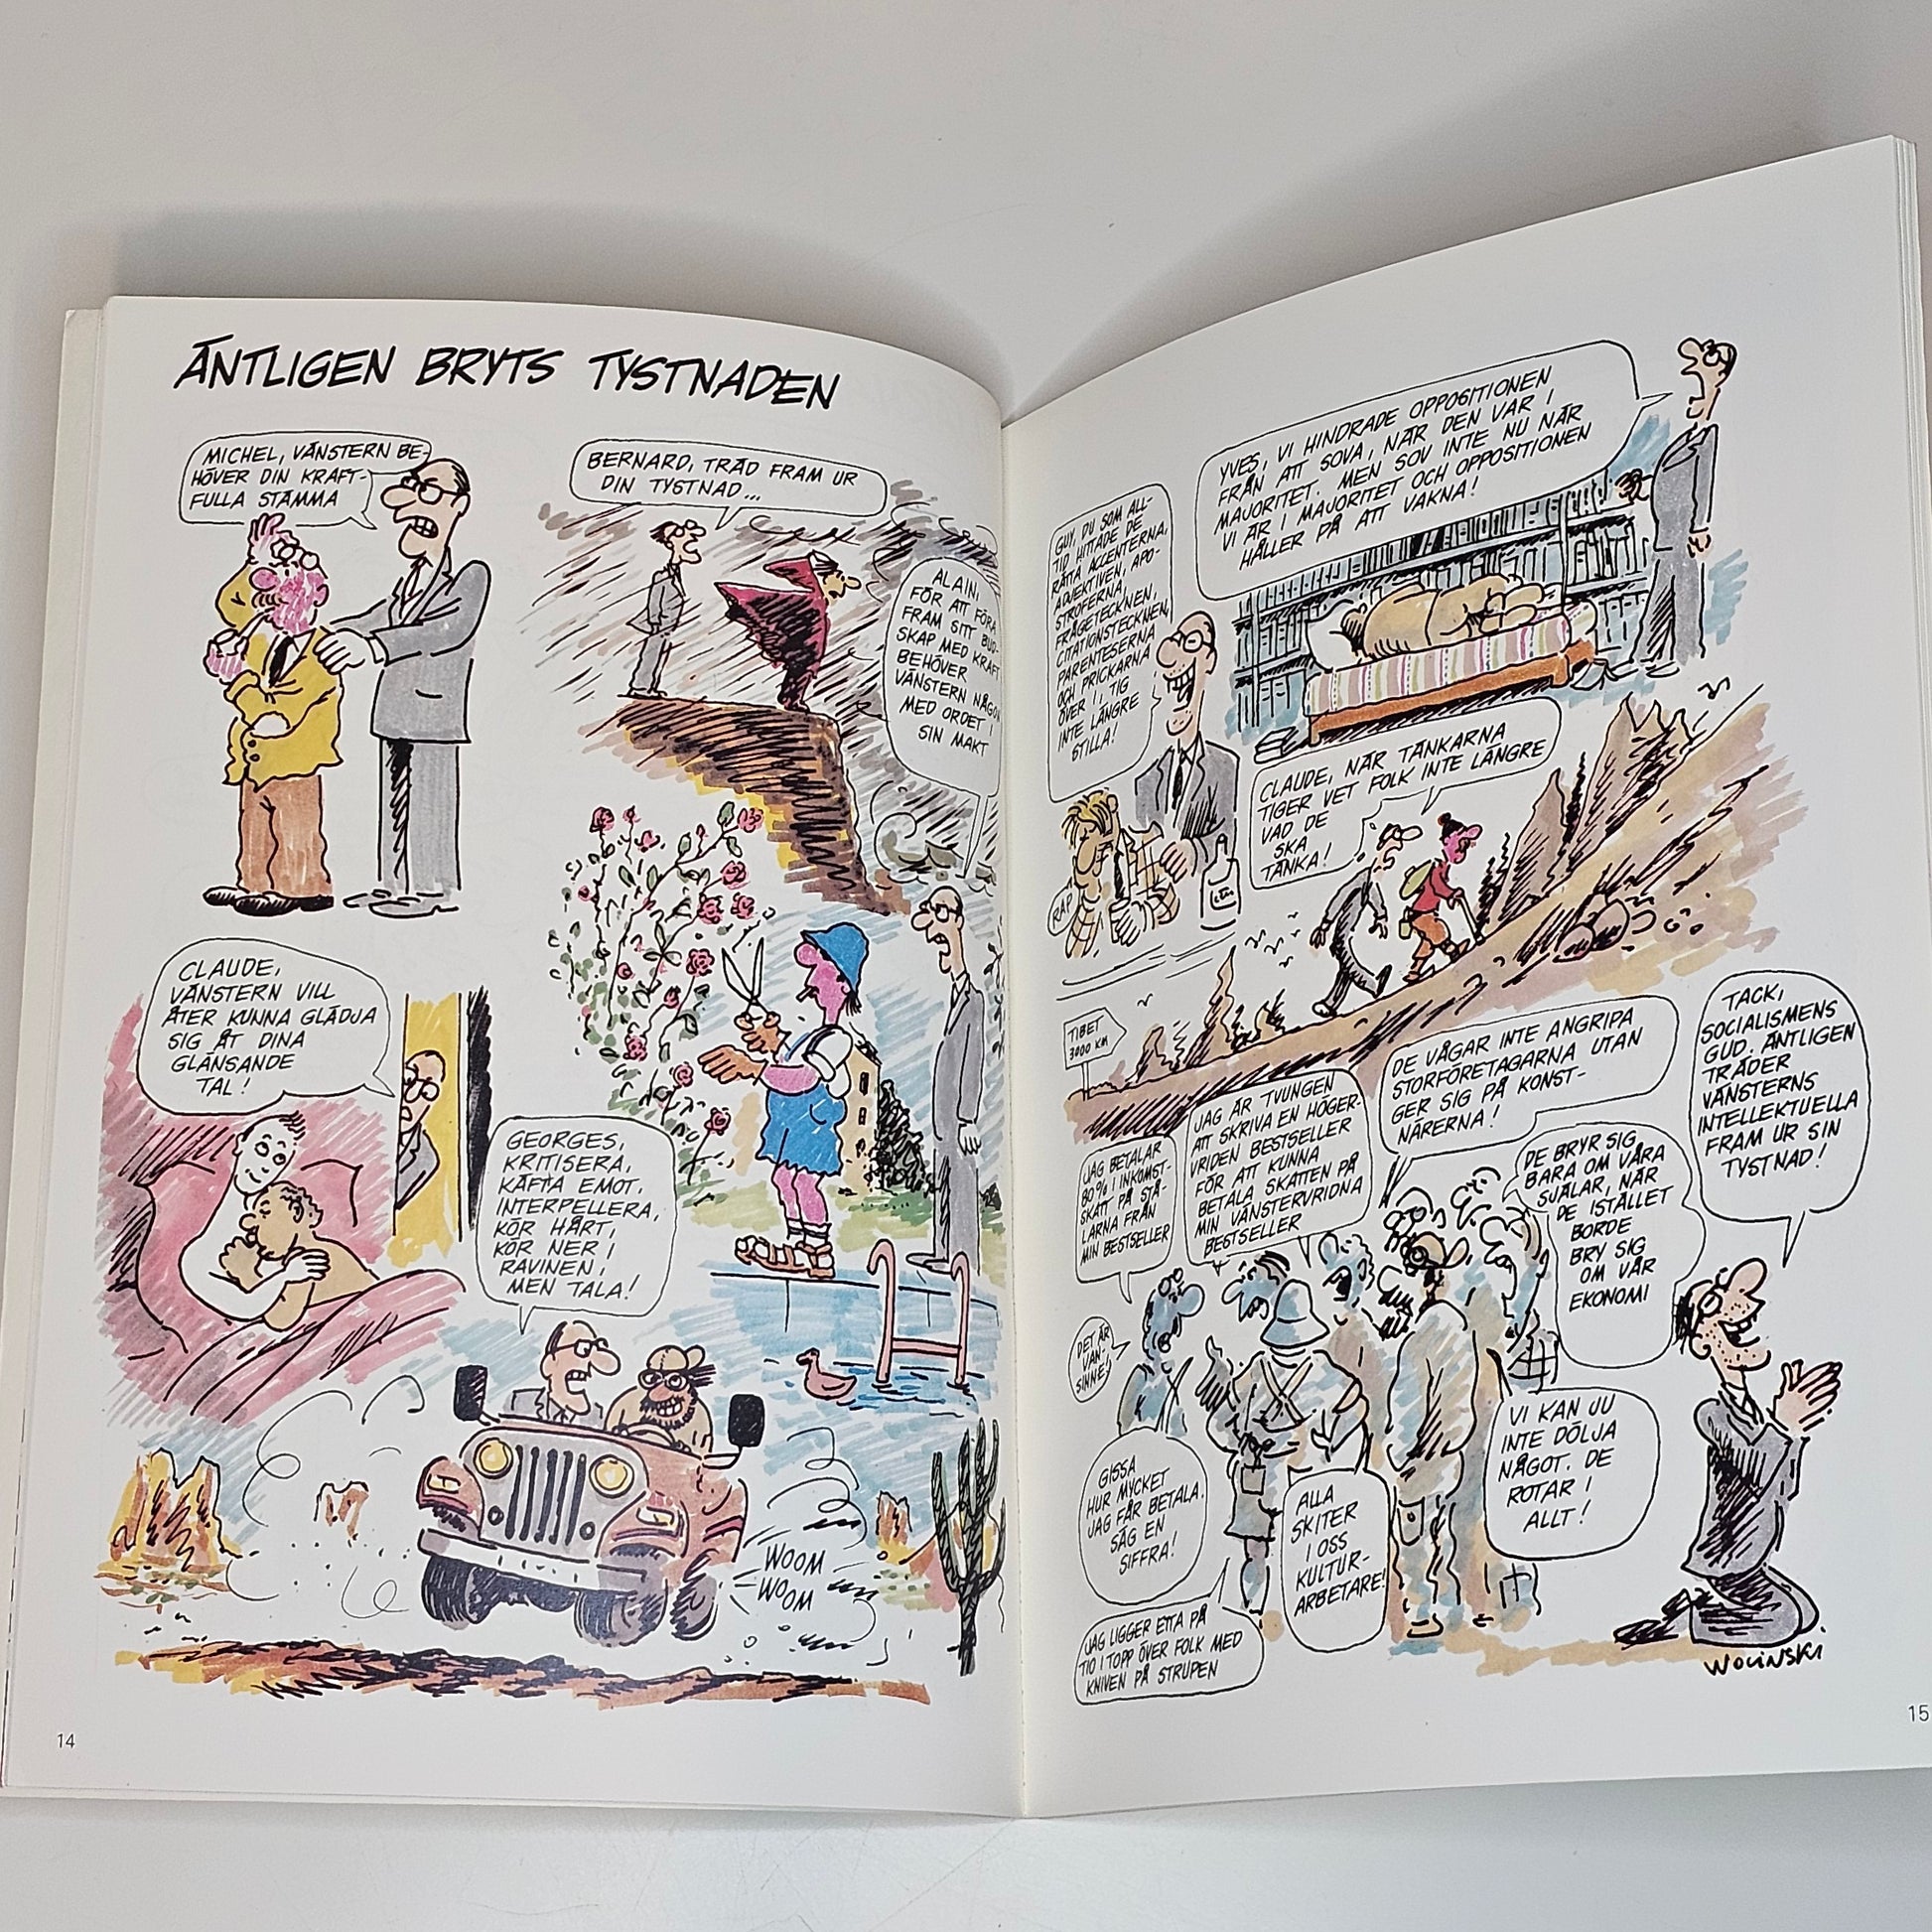 ÄNTLIGEN BRYTS TYSTNADEN
MICHEL, VÄNSTERN BE-
HÖVER DIN KRAFT-
FULLA STÄMMA
BERNARD, TRÄD FRAM UR
DIN TYSTNAD...
ALAIN,
FÖR ATT FÖRA
FRAM SITT BUD-
SKAP MED KRAFT
BEHÖVER
VÄNSTERN NÅGON
MED ORDET I
SIN MAKT
CLAUDE,
VÄNSTERN VILL
ÅTER KUNNA GLÄDJA
SIG ÅT DINA
GLÄNSANDE
TAL!
GEORGES,
KRITISERA,
KÄFTA EMOT,
INTERPELLERA,
KÖR HÅRT,
KÖR NER I
RAVINEN,
MEN TALA!
WOOM
WOOM
14
YVES, VI HINDRADE OPPOSITIONEN
FRÅN ATT SOVA, NÄR DEN VAR I
MAJORITET. MEN SOV INTE NU NÄR
VI ÄR I MAJORITET OCH OPPOSITIONEN
HÅLLER PÅ ATT VAKNA!
GUY, DU SOM ALL-
TID HITTADE DE
RÄTTA ACCENTERNA,
ADJEKTIVEN, APO-
STROFERNA,
FRÅGETECKNEN,
CITATIONSTECKNEN,
PARENTESERNA
OCH PRICKARNA
ÖVER I, TIG
INTE LÄNGRE
STILLA!
RAP
CLAUDE, NÄR TÄNKARNA
TIGER VET FOLK INTE LÄNGRE
VAD DE
SKA
TÄNKA!
TIBET
3000 KM
TACK,
SOCIALISMENS
GUD. ÄNTLIGEN
TRÄDER
VÄNSTERNS
INTELLEKTUELLA
FRAM UR SIN
TYSTNAD!
DE VÅGAR INTE ANGRIPA
STORFÖRETAGARNA UTAN
GER SIG PÅ KONST-
NÄRERNA!
JAG ÄR TVUNGEN
ATT SKRIVA EN HÖGER-
VRIDEN BESTSELLER
FÖR ATT KUNNA
BETALA SKATTEN PÅ
MIN VÄNSTERVRIDNA
BESTSELLER
JAG BETALAR
80% I INKOMST-
SKATT PÅ STÅ-
LARNA FRÅN
MIN BESTSELLER
DE BRYR SIG
BARA OM VÅRA
SJÄLAR, NÄR
DE ISTÄLLET
BORDE
BRY SIG
OM VÅR
EKONOMI
DET ÄR
VAN-
SINNE!
VI KAN JU
INTE DÖLJA
NÅGOT. DE
ROTAR I
ALLT!
GISSA
HUR MYCKET
JAG FÅR BETALA.
SÄG EN
SIFFRA!
ALLA
SKITER
I OSS
KULTUR-
ARBETARE!
JAG LIGGER ETTA PÅ
TIO I TOPP ÖVER FOLK MED
KNIVEN PÅ STRUPEN
WOLINSKI
15